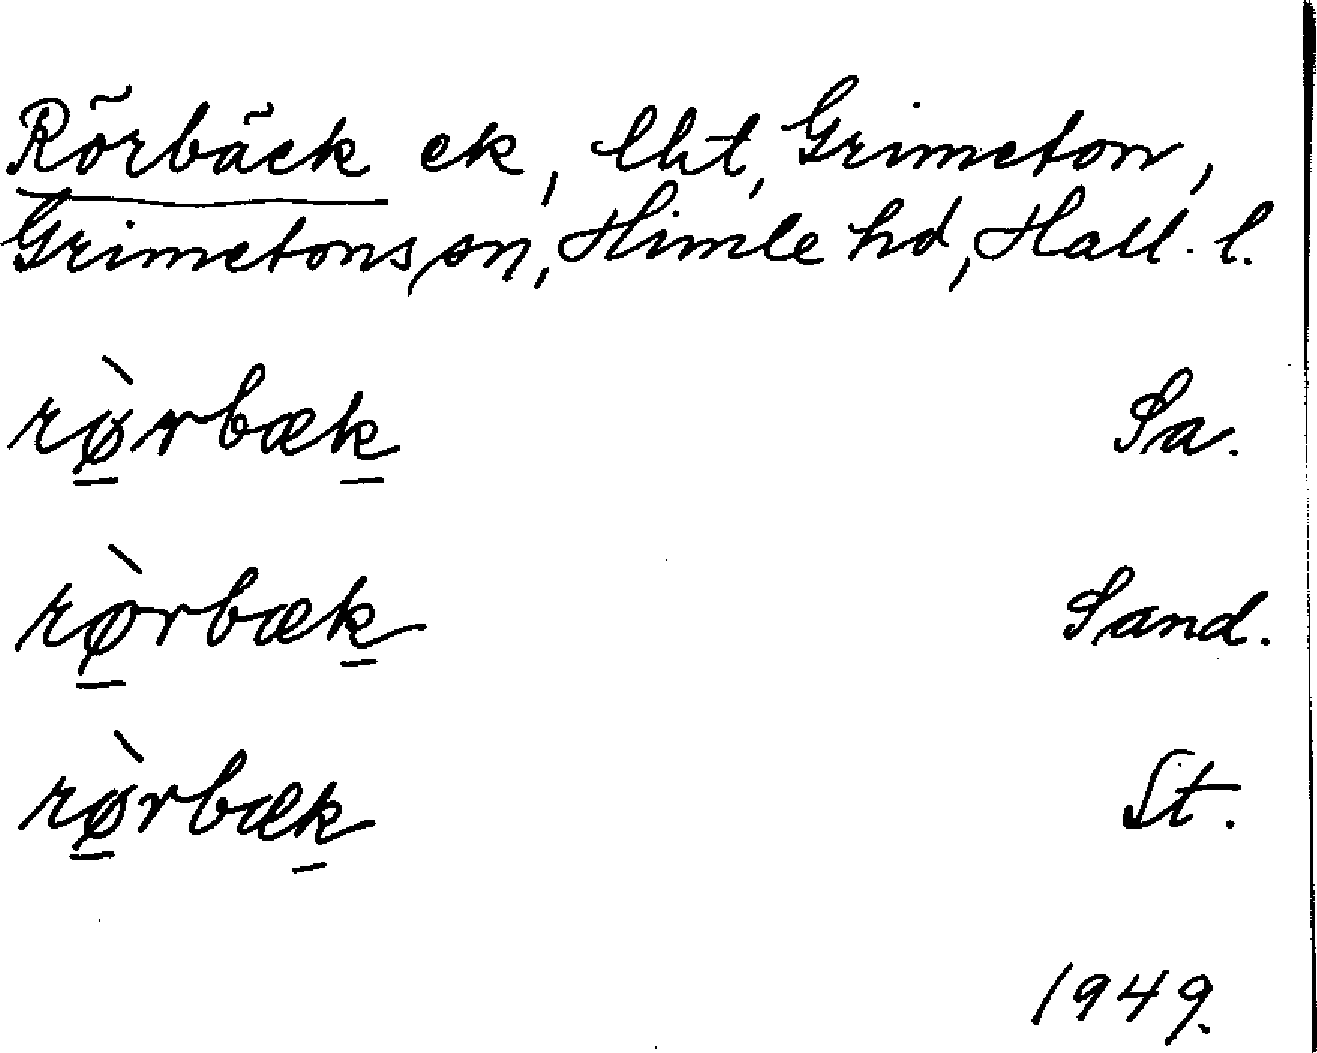 Rörbäck ek, lht, Grimeton,
Grimetons sn, Himle hd, Hall. l.
rø̀rbæk Sa.
rø̀rbæk Sand.
rø̀rbæk St.
1949.